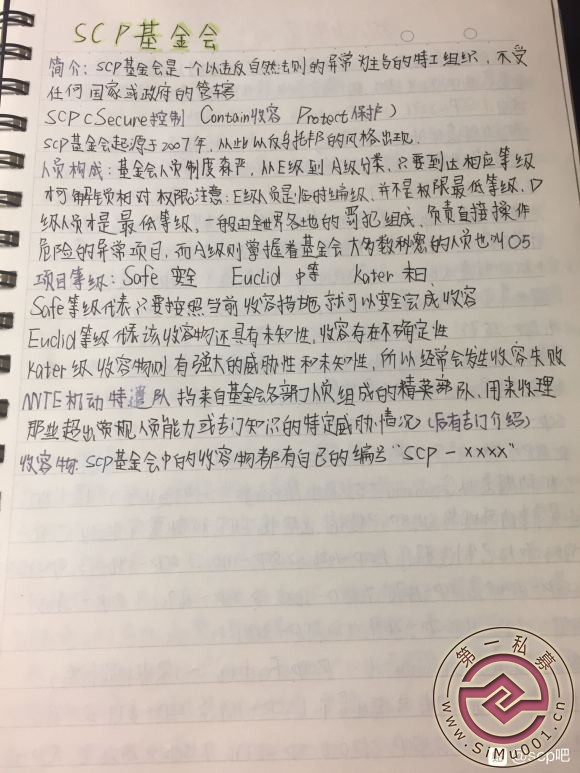 SCP基金会
简介：SCP基金会是一个以违反自然法则的异常为主导的特工组织，不受
任何国家或政府的管辖
SCP（Secure控制 Contain收容 Protect保护）
SCP基金会起源于2007年，从此以反乌托邦的风格出现．
人员构成：基金会人员制度森严，从E级到A级分类，只要到达相应等级
才可解锁相对权限注意：E级人员是临时编级，并不是权限最低等级，D
级人员才是最低等级，一般由全世界各地的罪犯组成，负责直接操作
危险的异常项目，而A级则掌握着基金会大多数秘密的人员也叫O5
项目等级：Safe 安全 Euclid 中等 Kater 末日．
Safe等级代表只要按照当前收容措施就可以安全完成收容
Euclid等级代表该收容物还具有未知性，收容存在不确定性
Kater级收容物则有强大的威胁性和未知性，所以经常会发生收容失败
MTE机动特遣队 指来自基金会各部门人员组成的精英部队，用来收理
那些超出常规人员能力或专门知识的特定威胁情况（后有专门介绍）
收容物：SCP基金会中的收容物都有自己的编号“SCP－xxxx”
第一私募
www.SiMu001.cn
scp吧